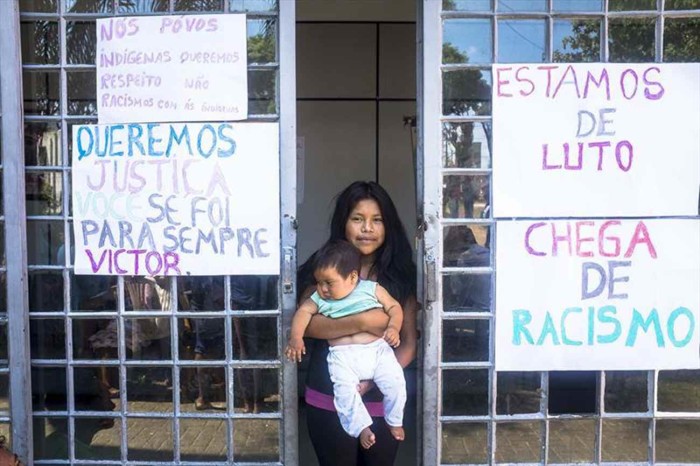 NÓS POVOS
INDÍGENAS QUEREMOS
RESPEITO NÃO
RACISMOS COM ÁS
QUEREMOS
JUSTICA
VOCE SE FOI
PARA SEMPRE
VICTOR
ESTAMOS
DE
LUTO
CHEGA
DE
RACISMO